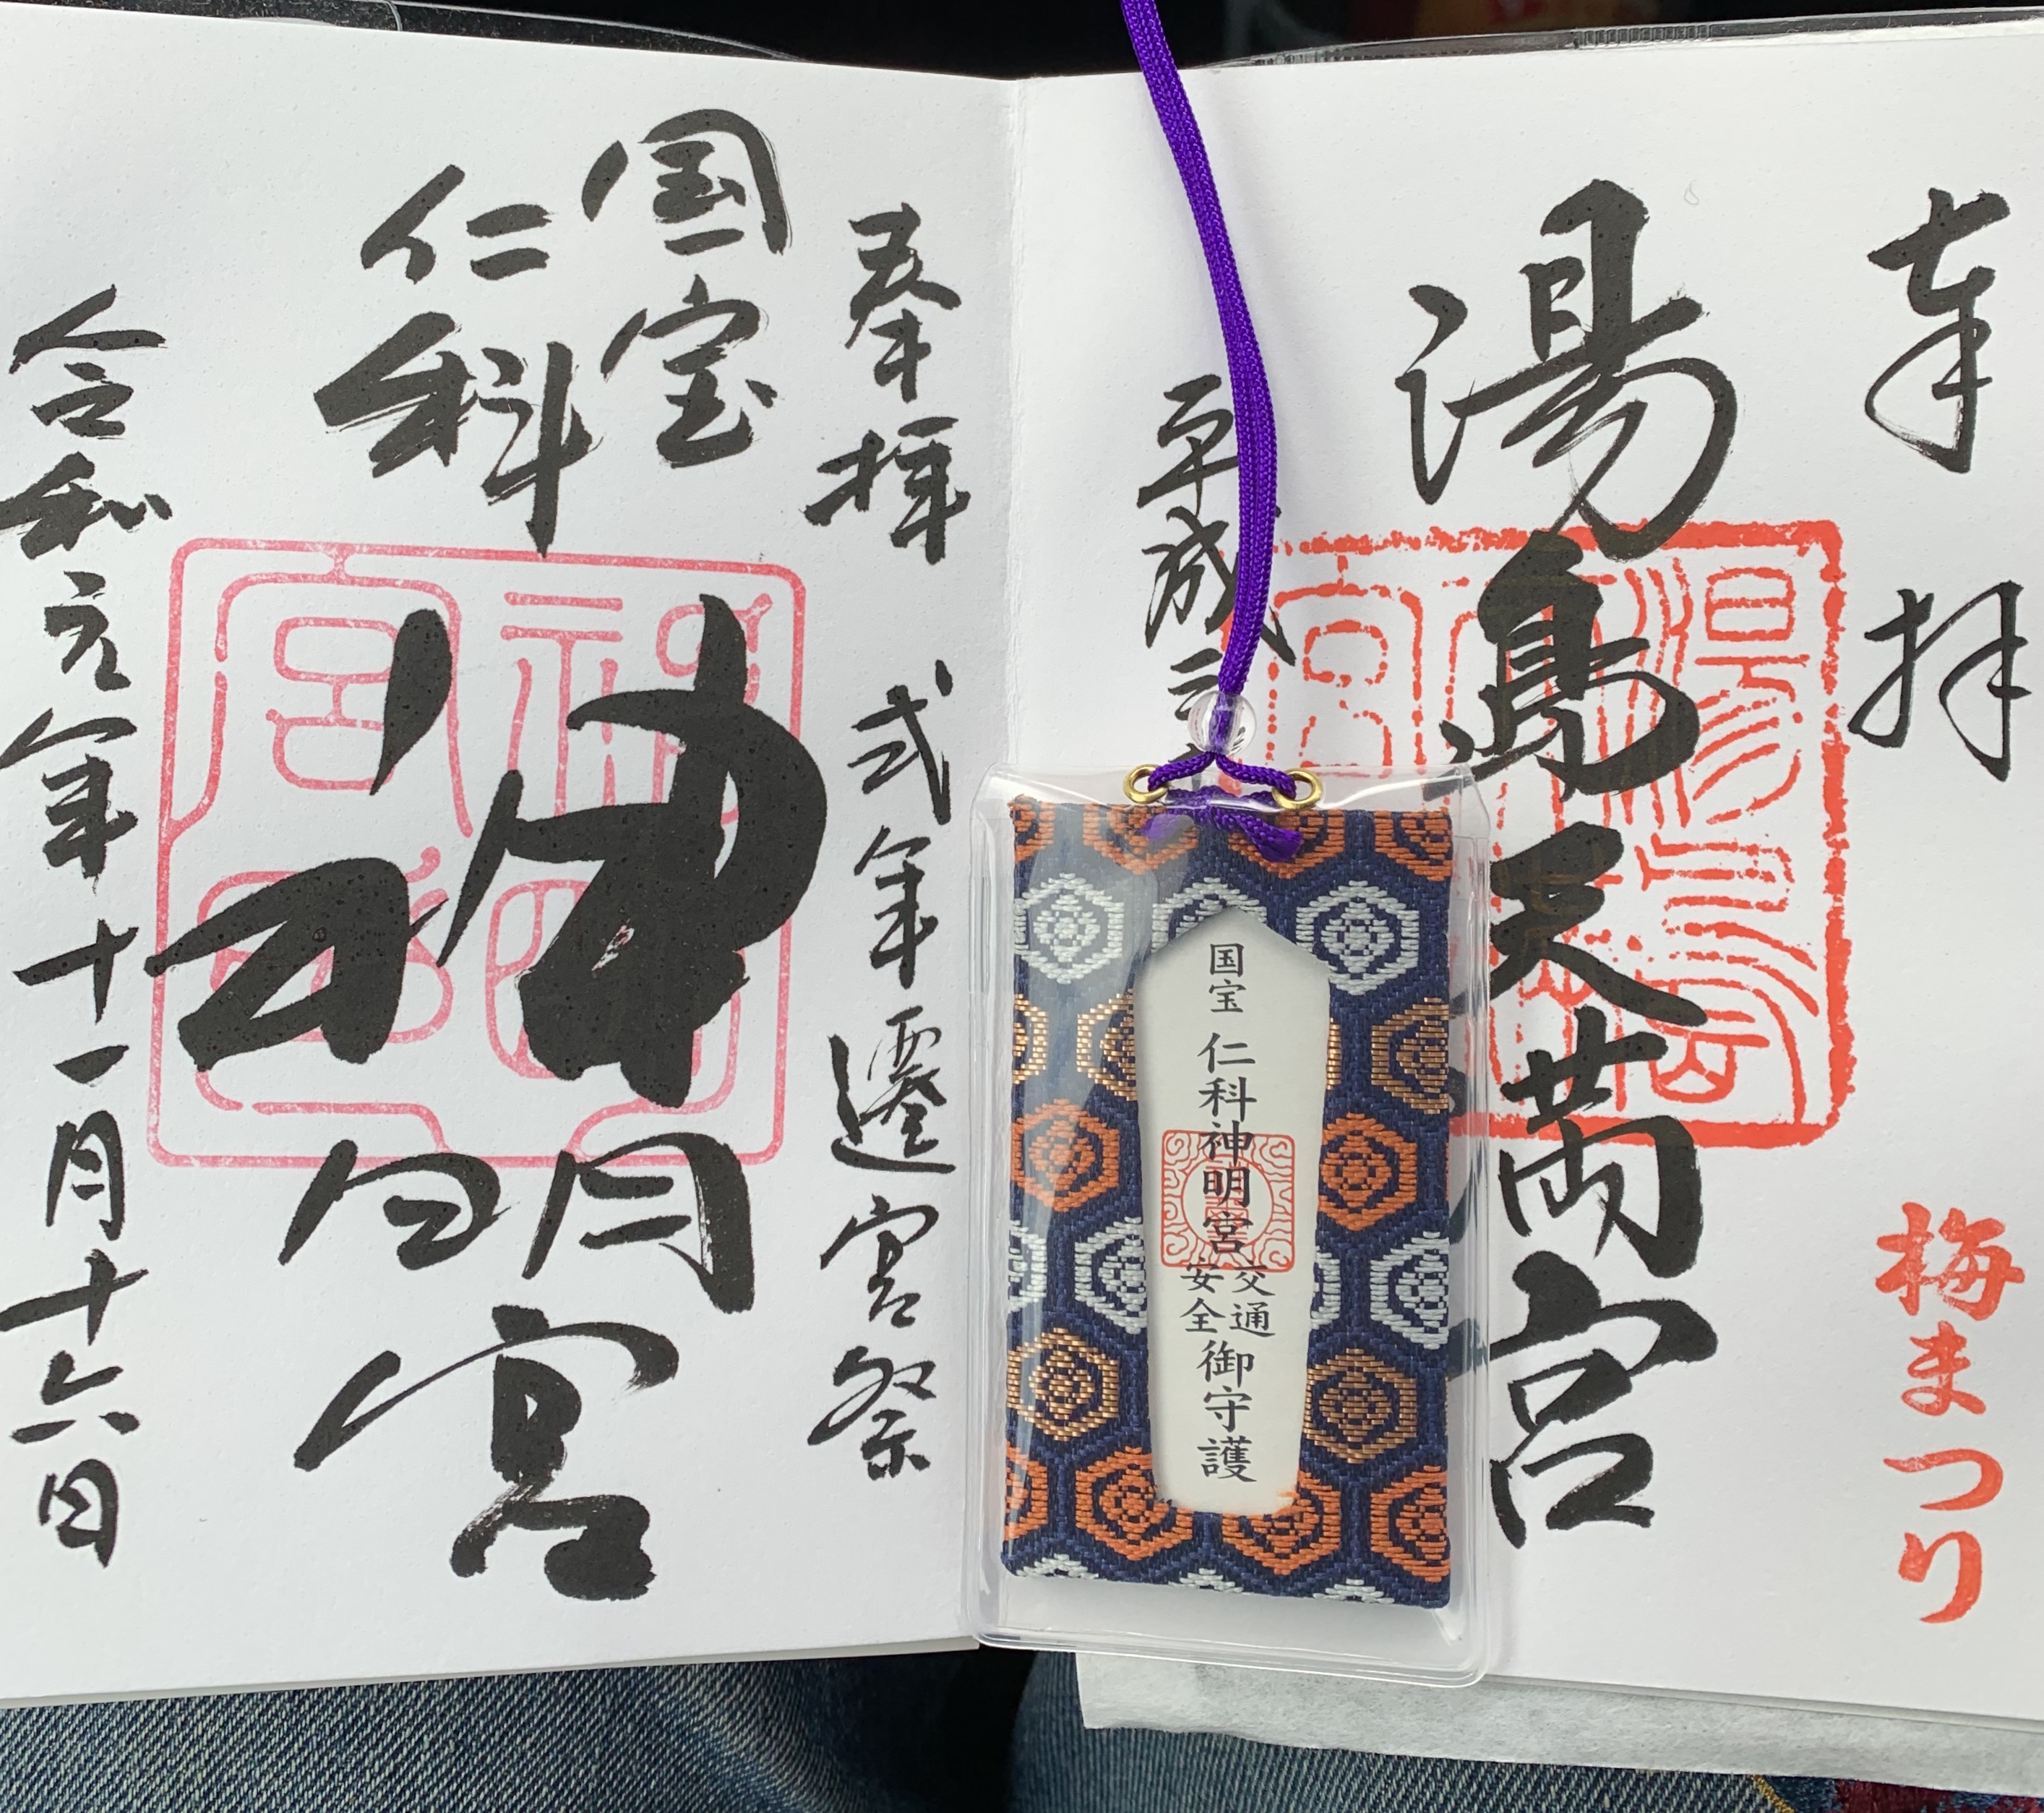 奉拝
梅まつり
湯島天満宮
平成三
国宝
仁科神明宮
交通
安全
御守護
奉拝 式年遷宮祭
国宝
仁科
神明宮
令和元年十一月十六日